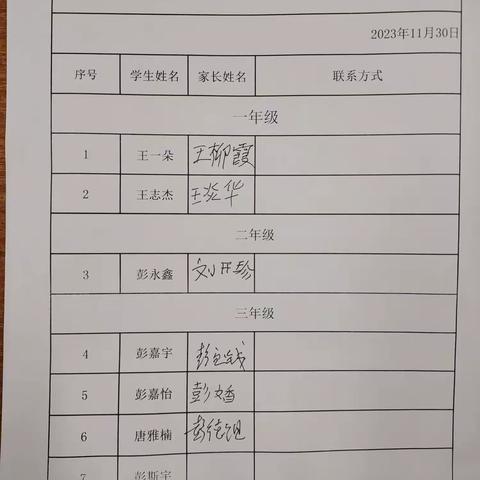 2023年11月30日
序号 学生姓名 家长姓名 联系方式
一年级
1 王一朵 王柳霞
2 王志杰 王炎华
二年级
3 彭永鑫 刘开珍
三年级
4 彭嘉宇
5 彭嘉怡
6 唐雅楠
7 彭斯宇